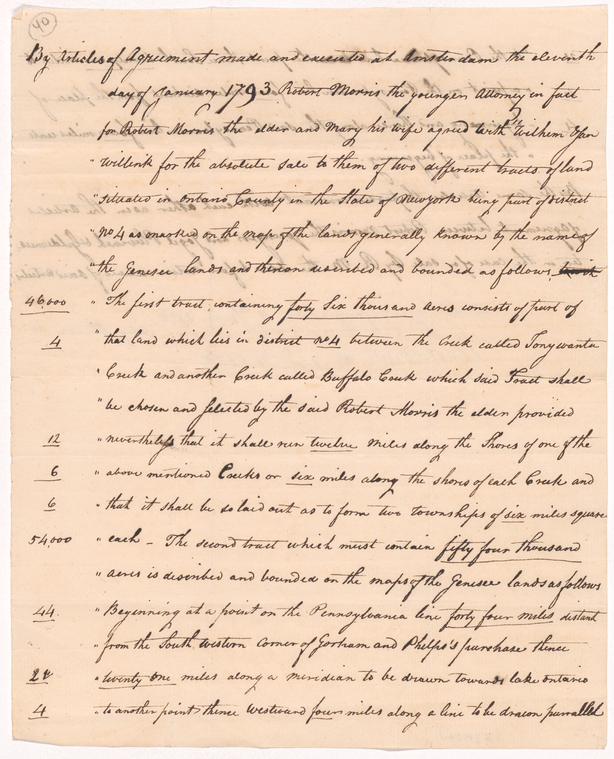 40
By Articles of Agreement made and executed at Amsterdam the eleventh
day of January 1793 Robert Morris the younger Attorney in fact
for Robert Morris the elder and Mary his wife agreed with Wilhem &Jan
" Willink for the absolute sale to them of two different tracts of land
" situated in Ontario County in the State of Newyork being part of district
" no 4 as marked on the map of the lands generally known by the name of
" the Genesee lands and thereon described and bounded as follows
46,000 " The first tract, containing forty Six thousand acres consists of part of
4 " that land which lies in district no 4 between the Creek called Tonywanta
" Creek and another Creek called Buffalo Creek which said Tract shall
" be chosen and selected by the said Robert Morris the elder provided
12 " nevertheless that it shall run twelve miles along the Shores of one of the
6 " above mentioned Creeks or six miles along the shores of each Creek and
6 " that it shall be so laid out as to form two townships of six miles square
54,000 " each – The second tract which must contain fifty four thousand
" acres is described and bounded on the maps of the Genesee lands as follows
44 " Beginning at a point on the Pennsylvania line forty four miles distant
" from the South western corner of Gorham and Phelps's purchase thence
21 " twenty one miles along a meridian to be drawn towards lake ontario
4 " to another point thence westward four miles along a line to be drawn parrallel